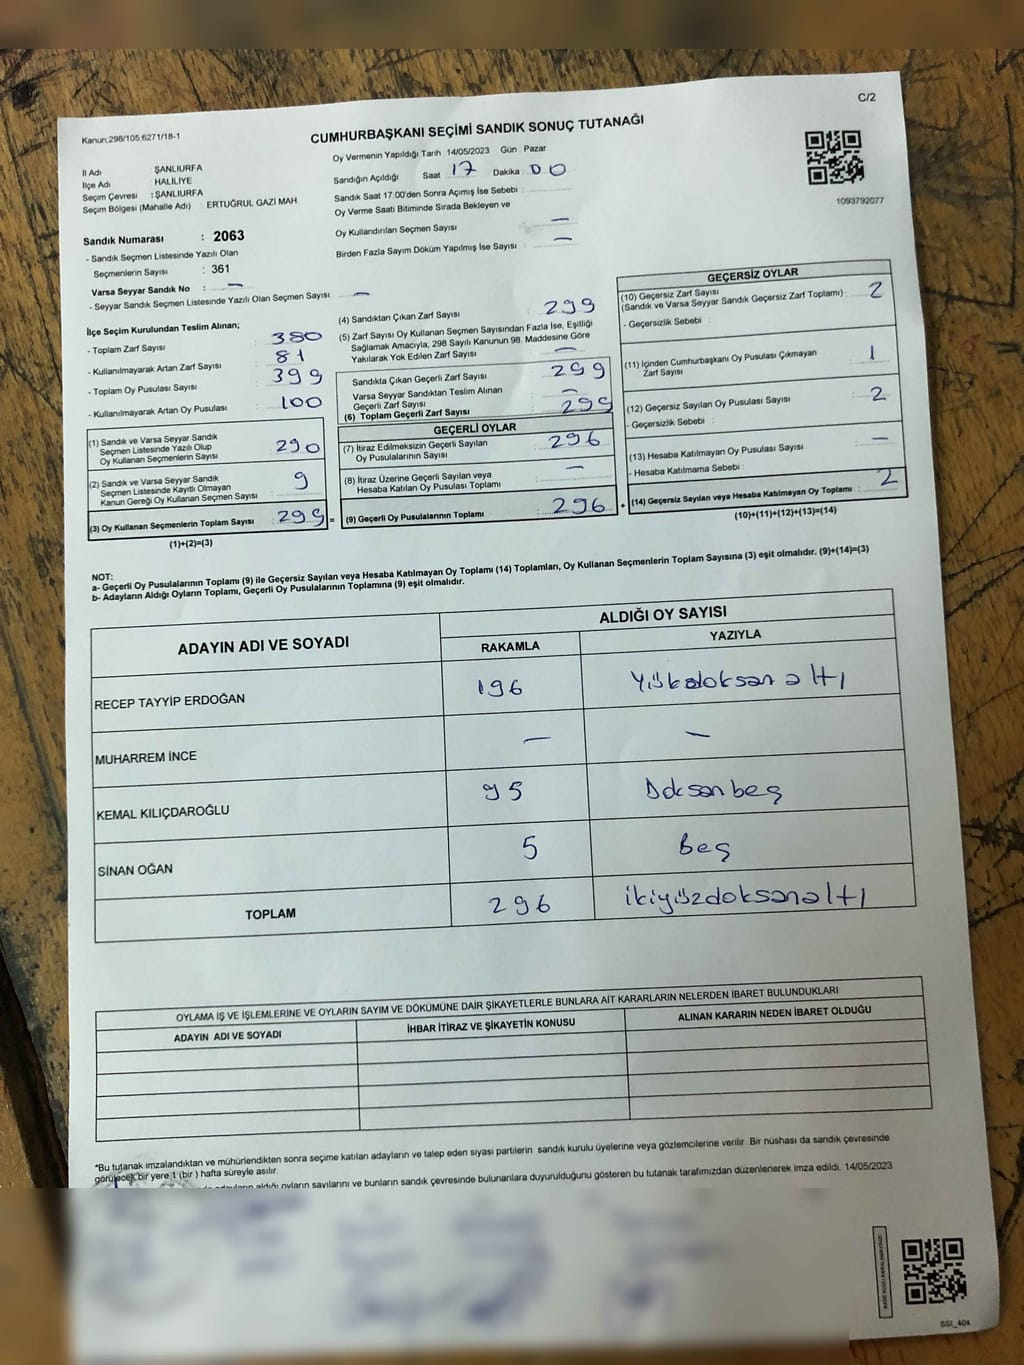 C/2
Kanun:298/105,6271/18-1
CUMHURBAŞKANI SEÇİMİ SANDIK SONUÇ TUTANAĞI
1093792077
İl Adı ŞANLIURFA
İlçe Adı HALİLİYE
Seçim Çevresi : ŞANLIURFA
Seçim Bölgesi (Mahalle Adı) : ERTUĞRUL GAZİ MAH
Oy Vermenin Yapıldığı Tarih : 14/05/2023 Gün : Pazar
Sandığın Açıldığı Saat 17 Dakika 00
Sandık Saat 17.00'den Sonra Açımış İse Sebebi :
Oy Verme Saati Bitiminde Sırada Bekleyen ve
Oy Kullandırılan Seçmen Sayısı : —
Birden Fazla Sayım Döküm Yapılmış İse Sayısı : —
Sandık Numarası : 2063
- Sandık Seçmen Listesinde Yazılı Olan
Seçmenlerin Sayısı : 361
Varsa Seyyar Sandık No : —
- Seyyar Sandık Seçmen Listesinde Yazılı Olan Seçmen Sayısı : —
İlçe Seçim Kurulundan Teslim Alınan;
- Toplam Zarf Sayısı : 380
- Kullanılmayarak Artan Zarf Sayısı : 81
- Toplam Oy Pusulası Sayısı : 399
- Kullanılmayarak Artan Oy Pusulası : 100
(1) Sandık ve Varsa Seyyar Sandık
Seçmen Listesinde Yazılı Olup
Oy Kullanan Seçmenlerin Sayısı : 290
(2) Sandık ve Varsa Seyyar Sandık
Seçmen Listesinde Kayıtlı Olmayan
Kanun Gereği Oy Kullanan Seçmen Sayısı : 9
(3) Oy Kullanan Seçmenlerin Toplam Sayısı : 299 =
(1)+(2)=(3)
(4) Sandıktan Çıkan Zarf Sayısı : 299
(5) Zarf Sayısı Oy Kullanan Seçmen Sayısından Fazla İse, Eşitliği
Sağlamak Amacıyla, 298 Sayılı Kanunun 98. Maddesine Göre
Yakılarak Yok Edilen Zarf Sayısı : —
Sandıkta Çıkan Geçerli Zarf Sayısı : 299
Varsa Seyyar Sandıktan Teslim Alınan
Geçerli Zarf Sayısı : —
(6) Toplam Geçerli Zarf Sayısı : 299
GEÇERLİ OYLAR
(7) İtiraz Edilmeksizin Geçerli Sayılan
Oy Pusulalarının Sayısı : 296
(8) İtiraz Üzerine Geçerli Sayılan veya
Hesaba Katılan Oy Pusulası Toplamı : —
(9) Geçerli Oy Pusulalarının Toplamı : 296 +
GEÇERSİZ OYLAR
(10) Geçersiz Zarf Sayısı
(Sandık ve Varsa Seyyar Sandık Geçersiz Zarf Toplamı) : 2
- Geçersizlik Sebebi :
(11) İçinden Cumhurbaşkanı Oy Pusulası Çıkmayan
Zarf Sayısı : 1
(12) Geçersiz Sayılan Oy Pusulası Sayısı : 2
- Geçersizlik Sebebi :
(13) Hesaba Katılmayan Oy Pusulası Sayısı : —
- Hesaba Katılmama Sebebi :
(14) Geçersiz Sayılan veya Hesaba Katılmayan Oy Toplamı : 2
(10)+(11)+(12)+(13)=(14)
NOT:
a- Geçerli Oy Pusulalarının Toplamı (9) ile Geçersiz Sayılan veya Hesaba Katılmayan Oy Toplamı (14) Toplamları, Oy Kullanan Seçmenlerin Toplam Sayısına (3) eşit olmalıdır. (9)+(14)=(3)
b- Adayların Aldığı Oyların Toplamı, Geçerli Oy Pusulalarının Toplamına (9) eşit olmalıdır.
ADAYIN ADI VE SOYADI
ALDIĞI OY SAYISI
RAKAMLA YAZIYLA
RECEP TAYYİP ERDOĞAN 196 Yüzdoksanaltı
MUHARREM İNCE — —
KEMAL KILIÇDAROĞLU 95 Doksanbeş
SİNAN OĞAN 5 Beş
TOPLAM 296 ikiyüzdoksanaltı
OYLAMA İŞ VE İŞLEMLERİNE VE OYLARIN SAYIM VE DÖKÜMÜNE DAİR ŞİKAYETLERLE BUNLARA AİT KARARLARIN NELERDEN İBARET BULUNDUKLARI
ADAYIN ADI VE SOYADI İHBAR İTİRAZ VE ŞİKAYETİN KONUSU ALINAN KARARIN NEDEN İBARET OLDUĞU
*Bu tutanak imzalandıktan ve mühürlendikten sonra seçime katılan adayların ve talep eden siyasi partilerin sandık kurulu üyelerine veya gözlemcilerine verilir. Bir nüshası da sandık çevresinde
görülecek bir yere 1 (bir) hafta süreyle asılır.
adayların aldığı oyların sayılarını ve bunların sandık çevresinde bulunanlara duyurulduğunu gösteren bu tutanak tarafımızdan düzenlenerek imza edildi. 14/05/2023
SSI_404